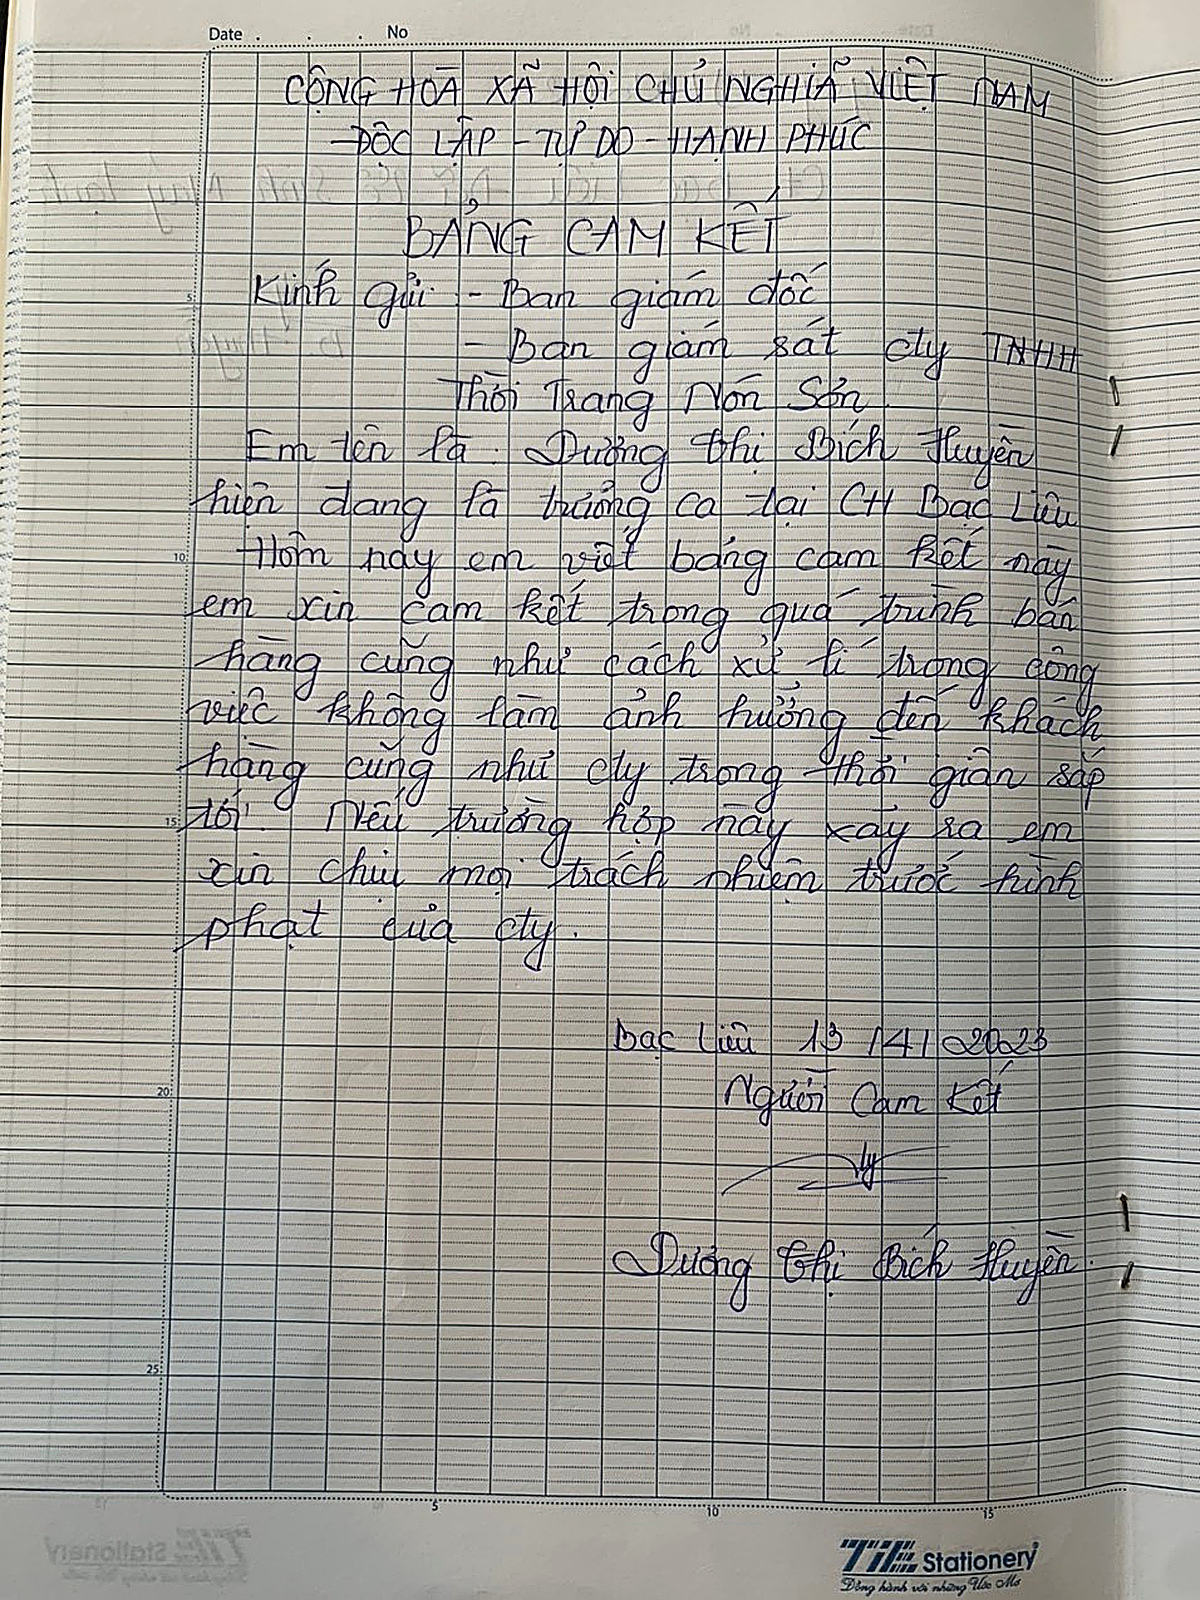 Date . . . No
CỘNG HOÀ XÃ HỘI CHỦ NGHĨA VIỆT NAM
ĐỘC LẬP - TỰ DO - HẠNH PHÚC
BẢNG CAM KẾT
Kính gửi - Ban giám đốc
- Ban giám sát cty TNHH
Thời Trang Nón Sơn
Em tên là: Dương thị Bích Huyền
hiện đang là trưởng ca tại CH Bạc Liêu
Hôm nay em viết bảng cam kết này
em xin cam kết trong quá trình bán
hàng cũng như cách xử lí trong công
việc không làm ảnh hưởng đến khách
hàng cũng như cty trong thời gian sắp
tới. Nếu trường hợp này xảy ra em
xin chịu mọi trách nhiệm trước hình
phạt của cty.
Bạc Liêu 13/4/2023
Người Cam Kết
Dương thị Bích Huyền
5
10
15
20
25
5
10
15
TiE Stationery
Đồng hành với những Ước Mơ